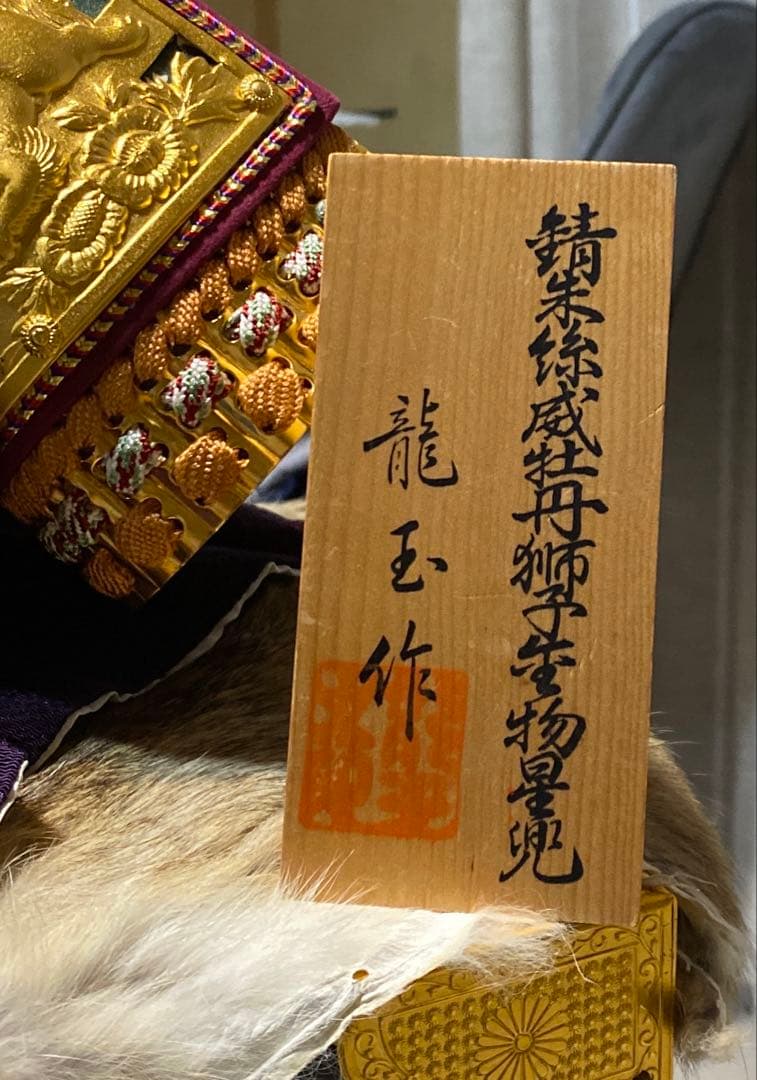 錆朱絲威牡丹獅子金物星兜
龍玉作